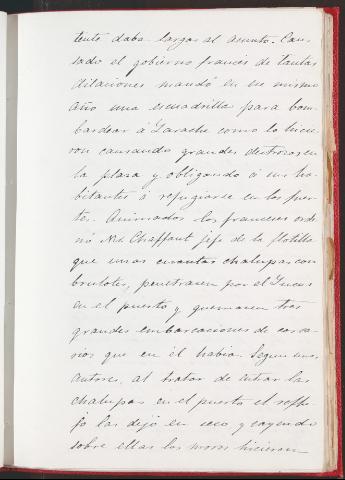 tento daba largas al asunto. Can-
sado el gobierno francés de tantas
dilaciones mandó en ese mismo
año una escuadrilla para bom-
bardear á Larache como lo hicie-
ron causando grandes destrozos en
la plaza y obligando á sus ha-
bitantes á refugiarse en los fuer-
tes. Animados los franceses orde-
nó Mr. Chaffaut jefe de la flotilla
que unas cuantas chalupas con
brulotes, penetrasen por el Lucus
en el puerto y quemasen tres
grandes embarcaciones de corsa-
rios que en él habia. Segun unos
autores, al tratar de entrar las
chalupas en el puerto el reflu-
jo las dejó en seco y cayendo
sobre ellas los moros hicieron